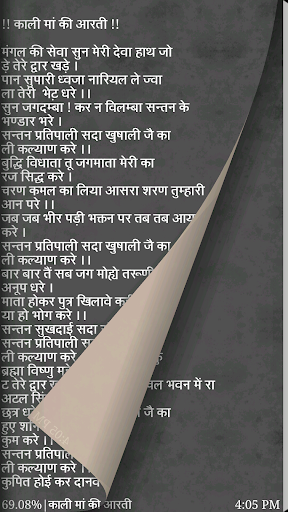 !! काली मां की आरती !!
मंगल की सेवा सुन मेरी देवा हाथ जो
ड़े तेरे द्वार खड़े ।
पान सुपारी ध्वजा नारियल ले ज्वा
ला तेरी भेट धरे ।।
सुन जगदम्बा ! कर न विलम्बा सन्तन के
भण्डार भरे ।
सन्तन प्रतिपाली सदा खुषाली जै का
ली कल्याण करे ।।
बुद्धि विधाता तू जगमाता मेरी का
रज सिद्ध करे ।
चरण कमल का लिया आसरा शरण तुम्हारी
आन परे ।।
जब जब भीर पड़ी भक्तन पर तब तब आय
करे ।
सन्तन प्रतिपाली सदा खुषाली जै का
ली कल्याण करे ।।
बार बार तैं सब जग मोह्ये
अनूप धरे ।
माता होकर पुत्र खिलावे
या हो भोग करे ।।
सन्तन सुखदाई सदा
ली कल्याण करे ।।
ब्रह्मा विष्णु
ट तेरे द्वार
वल भवन में रा
अटल
छत्र
जै का
हुए
कुम करे ।।
सन्तन प्रतिपाली
ली कल्याण करे
कुपित होई कर दानव
69.08%|काली मां की आरती 4:05 PM